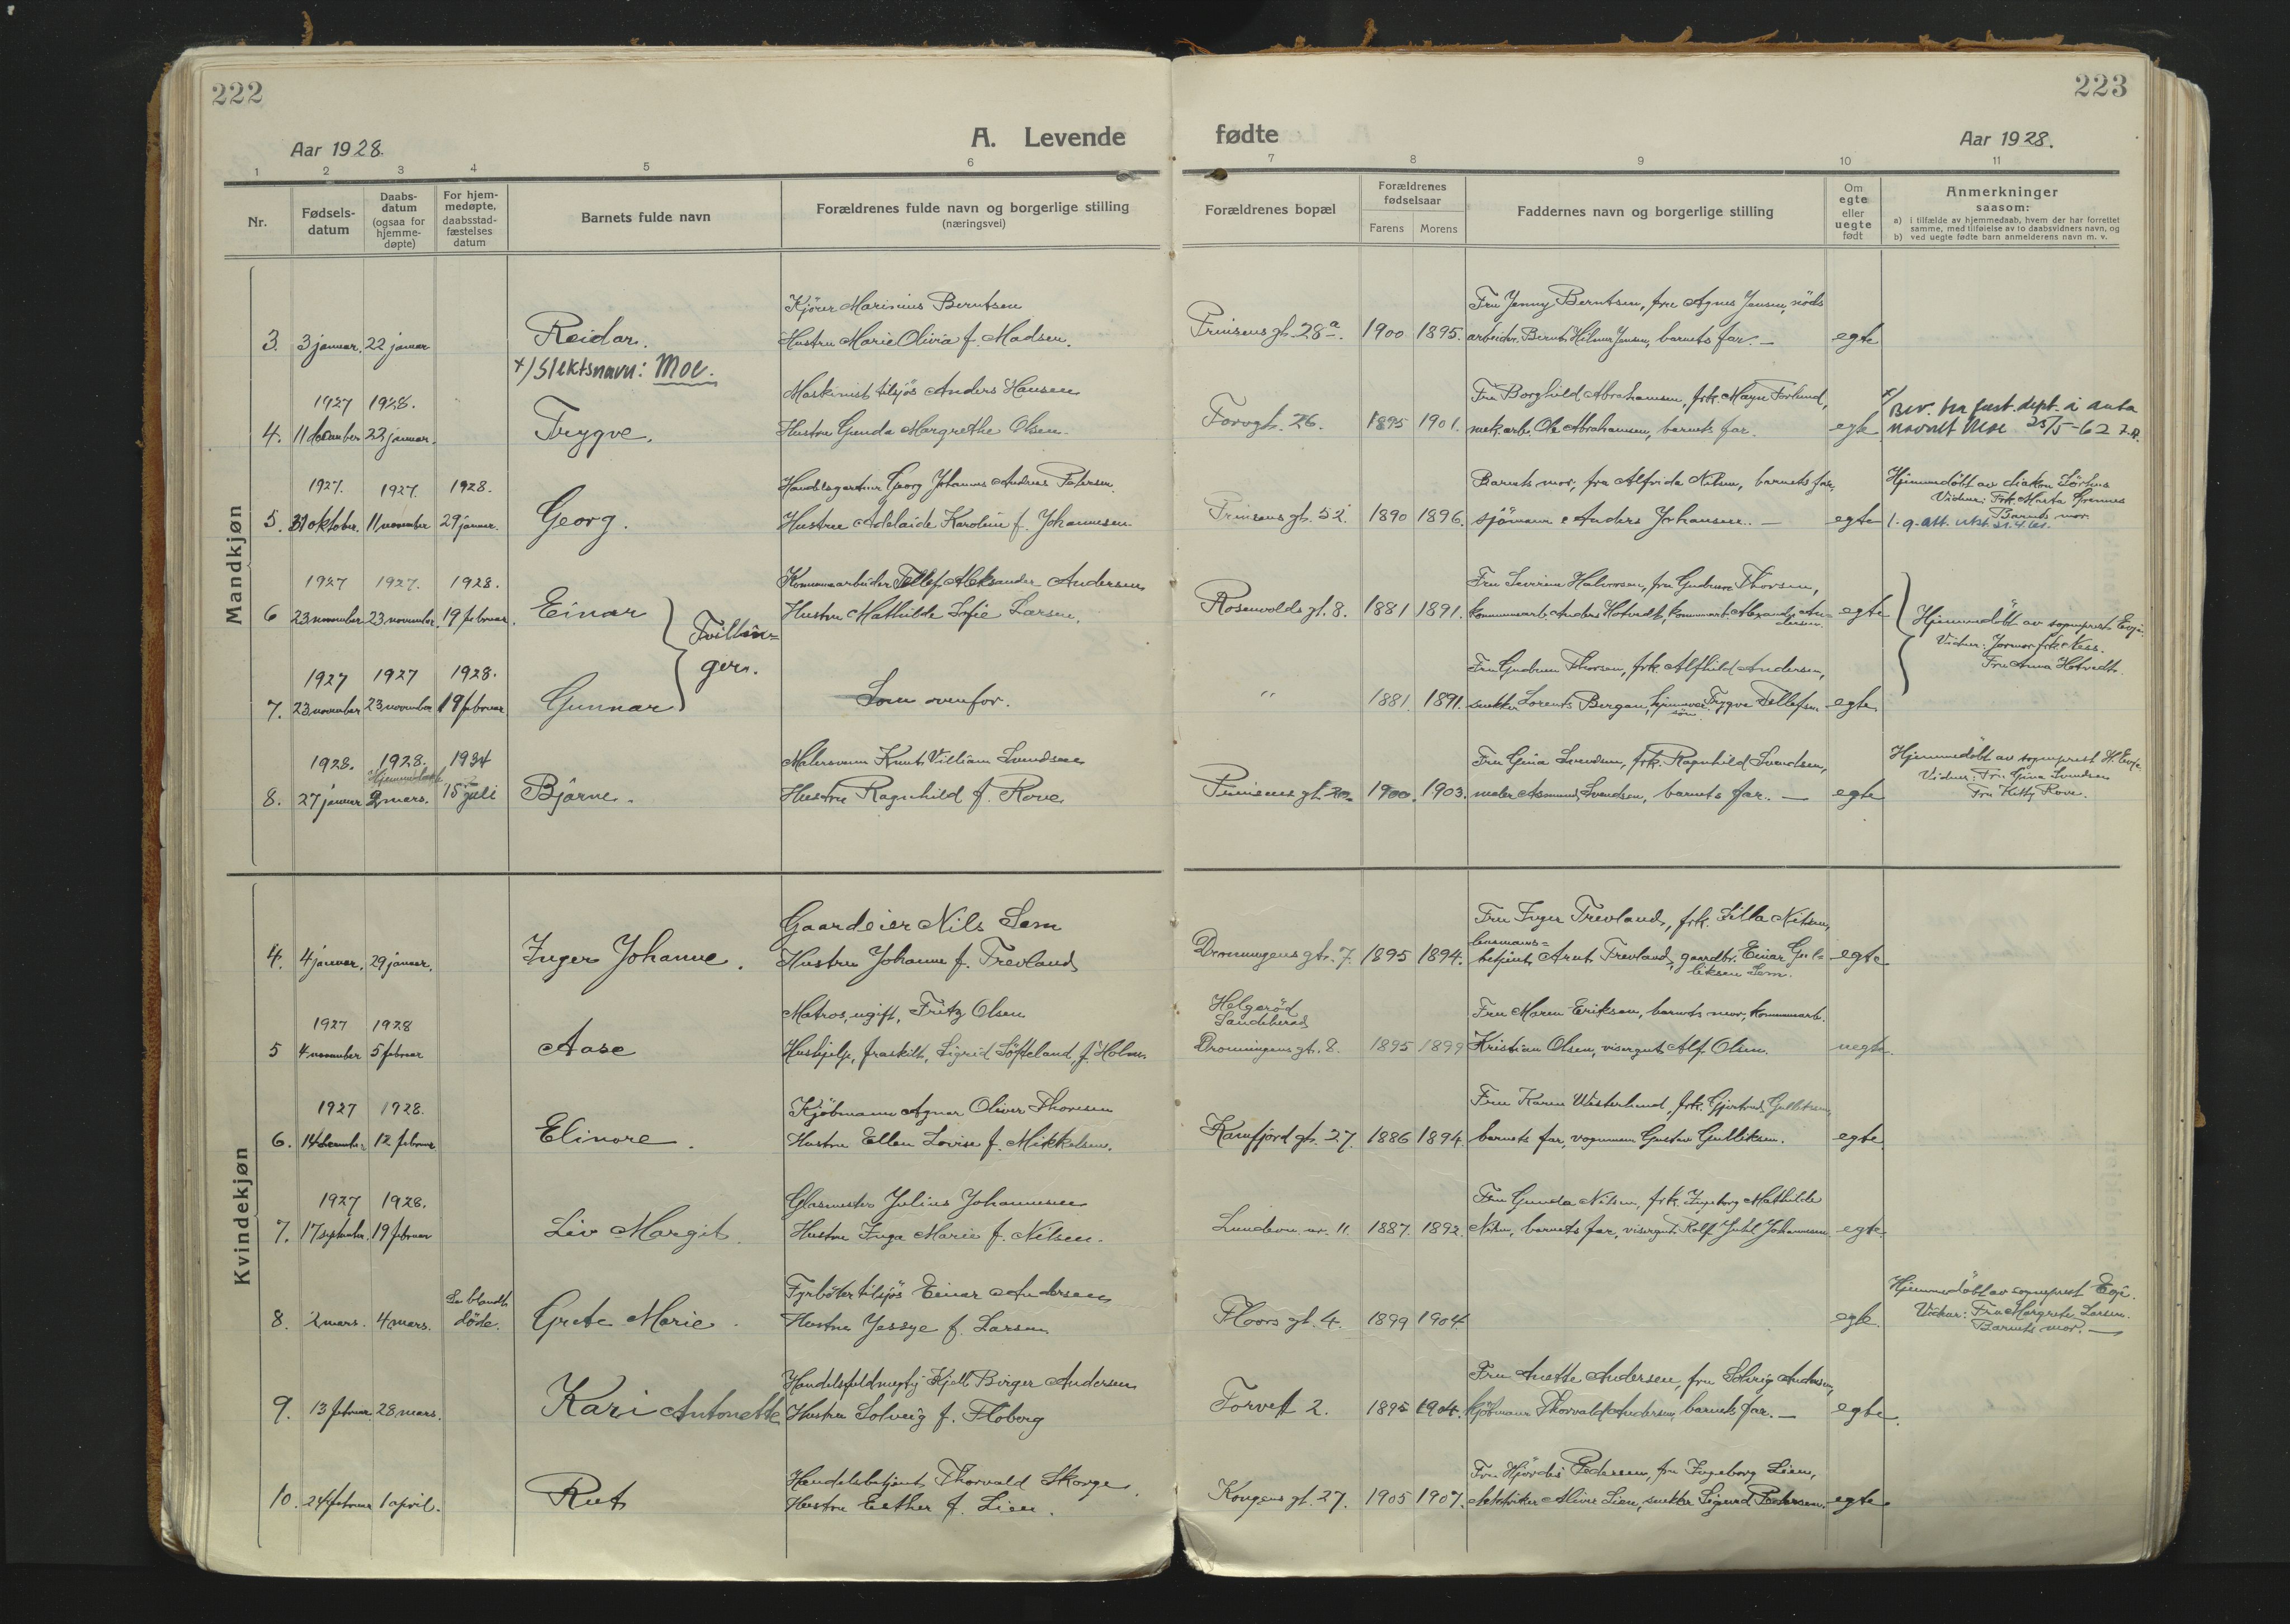 222
223
Aar 1928.
A. Levende fødte
Aar 1928.
1 2 3 4 5 6 7 8 9 10 11
Nr.
Fødsels-
datum
Daabs-
datum
(ogsaa for
hjemme-
døpte)
For hjem-
medøpte,
daabsstad-
fæstelses
datum
Barnets fulde navn
Forældrenes fulde navn og borgerlige stilling
(næringsvei)
Forældrenes bopæl
Forældrenes
fødselsaar
Farens Morens
Faddernes navn og borgerlige stilling
Om
egte
eller
uegte
født
Anmerkninger
saasom:
a) i tilfælde av hjemmedaab, hvem der har forrettet
samme, med tilføielse av to daabsvidners navn, og
b) ved uegte fødte barn anmelderens navn m. v.
Mandkjøn
Kjörer Marinius Berntsen
Fru Jenny Berntsen, fru Agnes Jensen, nöds
3. 3 januar. 22 januar Reidar. Hustru Marie Olivia f. Madsen. Prinsens gt. 28a. 1900 1895. arbeider Bernt Hilmar Jensen, barnets far. — egte
x/ Slektsnavn: Moe.
1927 1928. Maskinist tilsjös Anders Hansen Fru Borghild Abrahamsen, frk. Förlund,
4. 11 december 22 januar. Trygve. Hustru Gunda Margrethe Olsen. Torvgt. 26. 1895 1901. mek. arb. Ole Abrahamsen, barnets far. egte
x/ Bev. fra just. dept. å anta
navnet Moe 25/5-62
1927. 1927. 1928. Handelsgartner Georg Johannes Andreas Petersen. Barnets mor, fru Alfrida Nilsen, barnets far,
5. 31 oktober. 11 november 29 januar. Georg. Hustru Adelaide Karoline f. Johannesen Prinsens gt. 52. 1890 1896. sjömann Anders Johansen. — egte
Hjemmedöbt av diakon Sörhus
Vidner: Frk. Marta Hjemnes
Barnets mor.
1927 1927. 1928. Kommunearbeider Tellef Aleksander Andersen Fru Severine Halvorsen, fru Gudrun Thorsen,
6 23 november 23 november. 19 februar. Einar Hustru Mathilde Sofie Larsen. Rosenvolds gt. 8. 1881 1891. kommunearb. Anders Hotvedt, kommunearb. Alexander An-
dersen. egte
Tvillin-
ger.
Hjemmedöbt av sogneprest Evje.
Vidner: Jormor frk. Næss.
Fru Anna Hotvedt.
1927 1927 1928. Fru Gudrun Thorsen, frk. Alfhild Andersen,
7. 23 november 23 november 19 februar Gunnar Som ovenfor. " 1881. 1891. snekker Lorents Bergan, Trygve Tellefsen egte
1928. 1928. 1934 Malersvenn Knut Villiam Svendsen Fru Gina Svendsen, frk. Ragnhild Svendsen,
Hjemmedöbt
8. 27 januar 2 mars. 15 juli Bjarne. Hustru Ragnhild f. Rove Prinsens gt. 1900. 1903. maler Asmund Svendsen, barnets far. — egte
Hjemmedöbt av sogneprest H. Evje
Vidner: Fru Gina Svendsen
Fru Kitty Rove.
Kvindekjøn
Gaardeier Nils Sem Fru Inger Trevland, frk. Nilsen,
4. 4 januar. 29 januar. Inger Johanne. Hustru Johanne f. Trevland Dronningens gt. 7. 1895 1894. lensmans=
betjent Arnt Trevland, gaardbr. Einar Gul-
liksen Sem. egte
1927 1928 Matros, ugift, Fritz Olsen Helgeröd
Sandeherad Fru Maren Eriksen, barnets mor, kommunearb.
5 4 november 5 februar Aase Hushjelp, fraskilt, Sigrid Söfteland, f. Holmen Dronningens gt. 8. 1895 1899 Kristian Olsen, visergut Alf Olsen. uegte.
1927 1928. Kjöbmann Agnar Oliver Thoresen Fru Karen Westerlund, frk. Gjertrud Gulliksen,
6. 14 december 12 februar Elinore. Hustru Ellen Lovise f. Mikkelsen. Kamfjord gt. 27. 1886 1894. barnets far, vognmann Gustav Gulliksen. egte
1927 1928. Glasmester Julius Johannesen Fru Gunda Nilsen, frk. Ingeborg Mathilde
7. 17 september. 19 februar Liv Margit. Hustru Inga Marie f. Nilsen. Lundeön nr. 11. 1887. 1892. Nilsen, barnets far, visergut Rolf Juhl Johannesen. egte.
Fyrböter tilsjös Einar Andersen
8. 2 mars. 4 mars. Se blandt
döde. Grete Marie. Hustru Jessye f. Larsen Floors gt. 4. 1899 1904. egte.
Hjemmedöbt av sogneprest Evje.
Vidner: Fru Margrete Larsen.
Barnets mor. —
Handelsfuldmegtig Kjell Birger Andersen Fru Anette Andersen, fru Solveig Andersen,
9. 13 februar 28 mars. Kari Antonette Hustru Solveig f. Floberg Torvet 2. 1895 1904. kjöbmann Thorvald Andersen, barnets far. — egte.
Handelsbetjent Thorvald Skorge Fru Hjördis Pedersen, fru Ingeborg Lien,
10. 24 februar 1 april. Rut Hustru Esther f. Lien. Kongens gt. 27. 1905 1907. elektriker Oliver Lien, snekker Sigurd Pedersen. egte